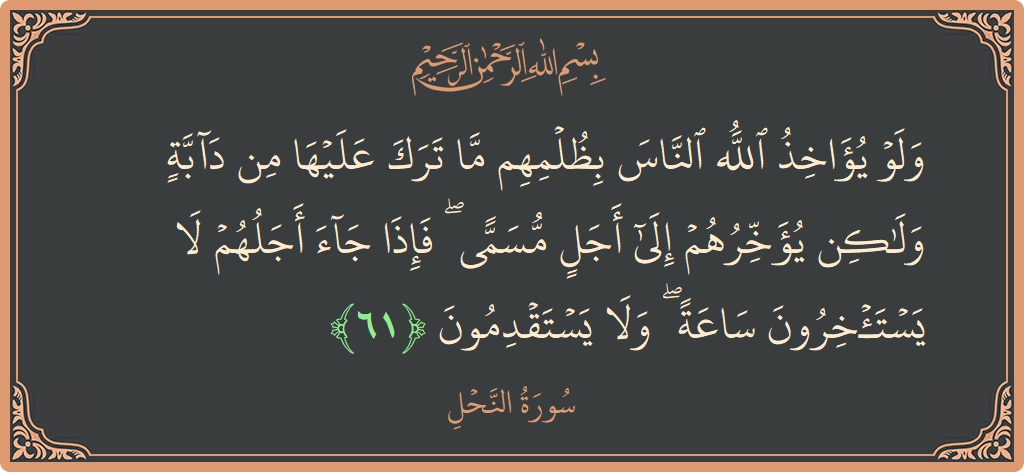 بِسْمِ اللَّهِ الرَّحْمَٰنِ الرَّحِيمِ
وَلَوْ يُؤَاخِذُ ٱللَّهُ ٱلنَّاسَ بِظُلْمِهِم مَّا تَرَكَ عَلَيْهَا مِن دَآبَّةٍ
وَلَـٰكِن يُؤَخِّرُهُمْ إِلَىٰٓ أَجَلٍ مُّسَمًّى ۖ فَإِذَا جَآءَ أَجَلُهُمْ لَا
يَسْتَـْٔخِرُونَ سَاعَةً ۖ وَلَا يَسْتَقْدِمُونَ ﴿٦١﴾
سُورَةُ النَّحْلِ